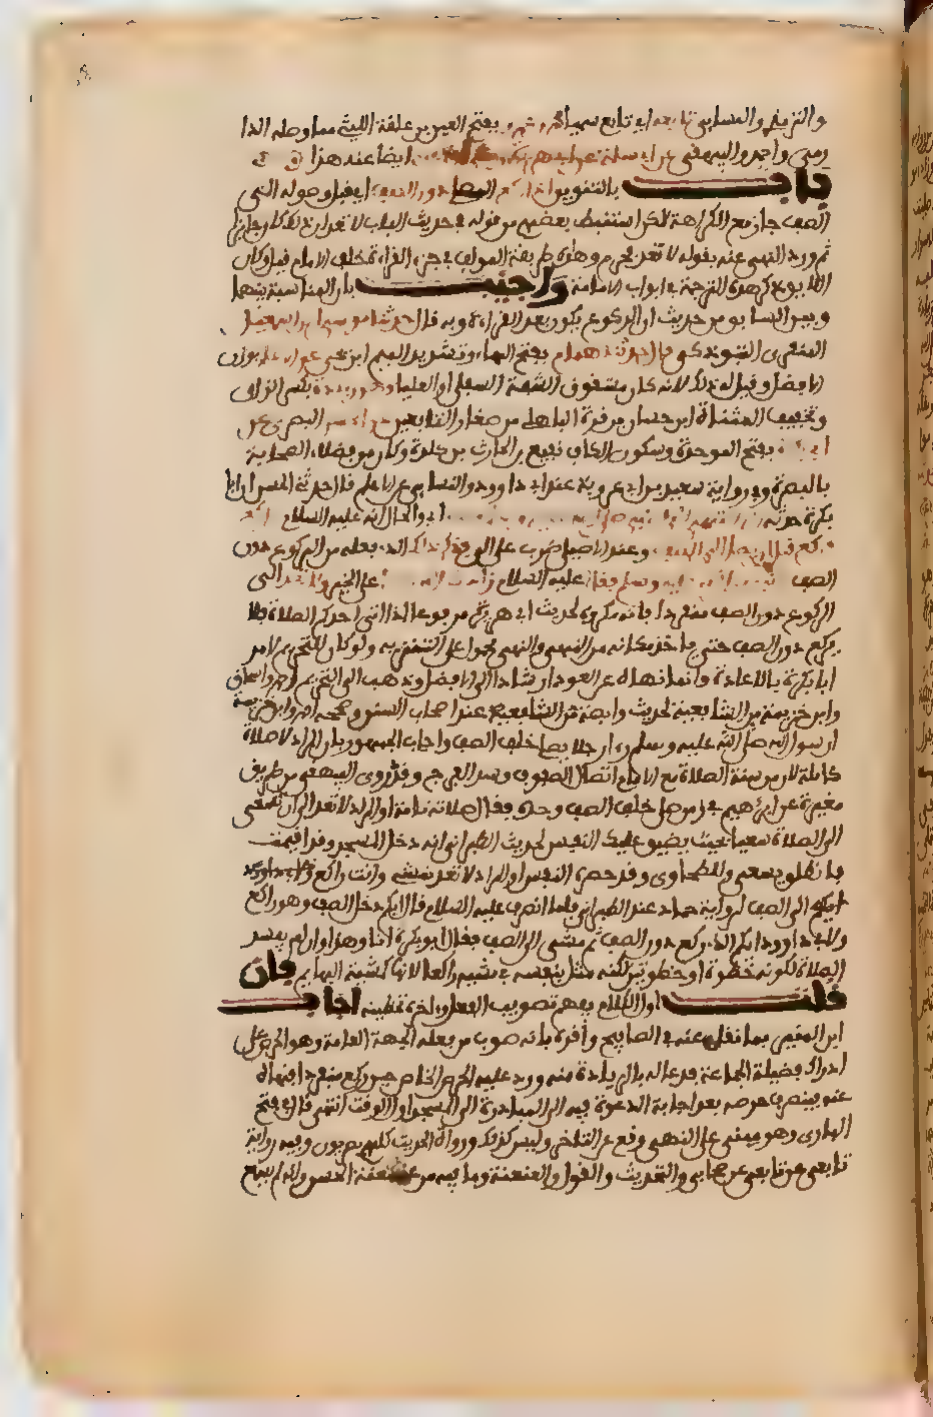 والترمذي والنسائي تابعه اي تابع سميا محمد بن عمرو بفتح العين بن علقمة الليثي مما وصله الدا
رمي واحمد والبيهقي عن ابي سلمة عن ابي هريرة ايضا عند هذا
باب بالتنوين اذا ركع المصلي دون الصف اي قبل وصوله الى
الصف جاز مع الكراهة لكن استنبط بعضهم من قوله في حديث الباب لا تعد ان ذلك كان جايزا
ثم ورد النهي عنه بقوله لا تعد بمحرم وهذه طريقة المولف في جزء القراءة خلف الامام قيل وكان
اللايق ذكر هذه الترجمة في ابواب الامامة واجيب بان المناسبة بينهما
وبين السابق من حديث ان الركوع يكون بعد القراءة وبه قال حدثنا موسى بن اسمعيل
المنقري التبوذكي قال حدثنا همام بفتح الهاء وتشديد الميم ابن يحيى عن الاعلم بوزن
الافضل وقيل له ذلك لانه كان مشقوق الشفة السفلى او العليا وهو زياد بكسر الزاي
وتخفيف المثناة ابن حسان بن قرة الباهلي من صغار التابعين عن الحسن البصري عن
ابي بكرة بفتح الموحدة وسكون الكاف نفيع بن الحارث بن كلدة وكان من فضلاء الصحابة
بالبصرة وفي رواية سعيد بن ابي عروبة عند ابي داوود والنسايي عن الاعلم قال حدثنا الحسن ان ابا
بكرة حدثه انه انتهى الى النبي صلى الله عليه وسلم وهو راكع اي والحال انه عليه السلام راكع
فركع قبل ان يصل الى الصف وعند الاصيلي ضرب على الى فذكر ذلك الذي فعله من الركوع دون
الصف للنبي صلى الله عليه وسلم فقال عليه السلام زادك الله حرصا على الخير ولا تعد الى
الركوع دون الصف منفردا فانه مكروه لحديث ابي هريرة مرفوعا اذا اتى احدكم الصلاة فلا
يركع دون الصف حتى ياخذ مكانه من الصف والنهي محمول على التنزيه ولو كان للتحريم لامر
ابا بكرة بالاعادة وانما نهاه عن العود ارشادا الى الافضل وذهب الى التحريم احمد واسحاق
وابن خزيمة من الشافعية لحديث وابصة عند اصحاب السنن وصححه احمد وابن خزيمة
ان رسول الله صلى الله عليه وسلم راى رجلا يصلي خلف الصف واجاب الجمهور بان المراد لا صلاة
كاملة لان من سنة الصلاة مع الامام اتصال الصفوف وسد الفرج وقد روى البيهقي من طريق
مغيرة عن ابرهيم فيمن صلى خلف الصف وحده فقال صلاته تامة او المراد لا تعد الى ان تسعى
الى الصلاة سعيا بحيث يضيق عليك النفس لحديث الطبراني انه دخل المسجد وقد اقيمت
فانطلق يسعى وللطحاوي وقد حفزه النفس او المراد لا تعد تمشي وانت راكع
ايكم الى الصف لرواية حماد عند الطبراني فلما انصرف عليه السلام قال ايكم دخل الصف وهو راكع
ولابي داوود ايكم الذي ركع دون الصف ثم مشى الى الصف فقال ابو بكرة انا وهذا وان لم يفسد
الصلاة لكونه خطوة او خطوتين لكنه مثل بنفسه في مشيه راكعا لانها كمشية البهايم فان
قلت اول الكلام يفهم تصويب الفعل واخره تخطيئه اجاب
ابن المنير بما نقله عنه في المصابيح واقره بانه صوب من فعله الجهة العامة وهو الحرص على
ادراك فضيلة الجماعة فدعا له بالزيادة منه وورد عليه الحرص الخاص حين ركع منفردا فنهاه
عنه فينصرف حرصه بعد اجابة الدعوة فيه الى المبادرة الى المسجد اول الوقت انتهى قال في فتح
الباري وهو مبني على ان النهي وقع عن التاخر وليس كذلك ورواة الحديث كلهم بصريون وفيه رواية
تابعي عن تابعي عن صحابي والتحديث والقول والعنعنة وما فيه من عنعنة الحسن وانه لم يسمع